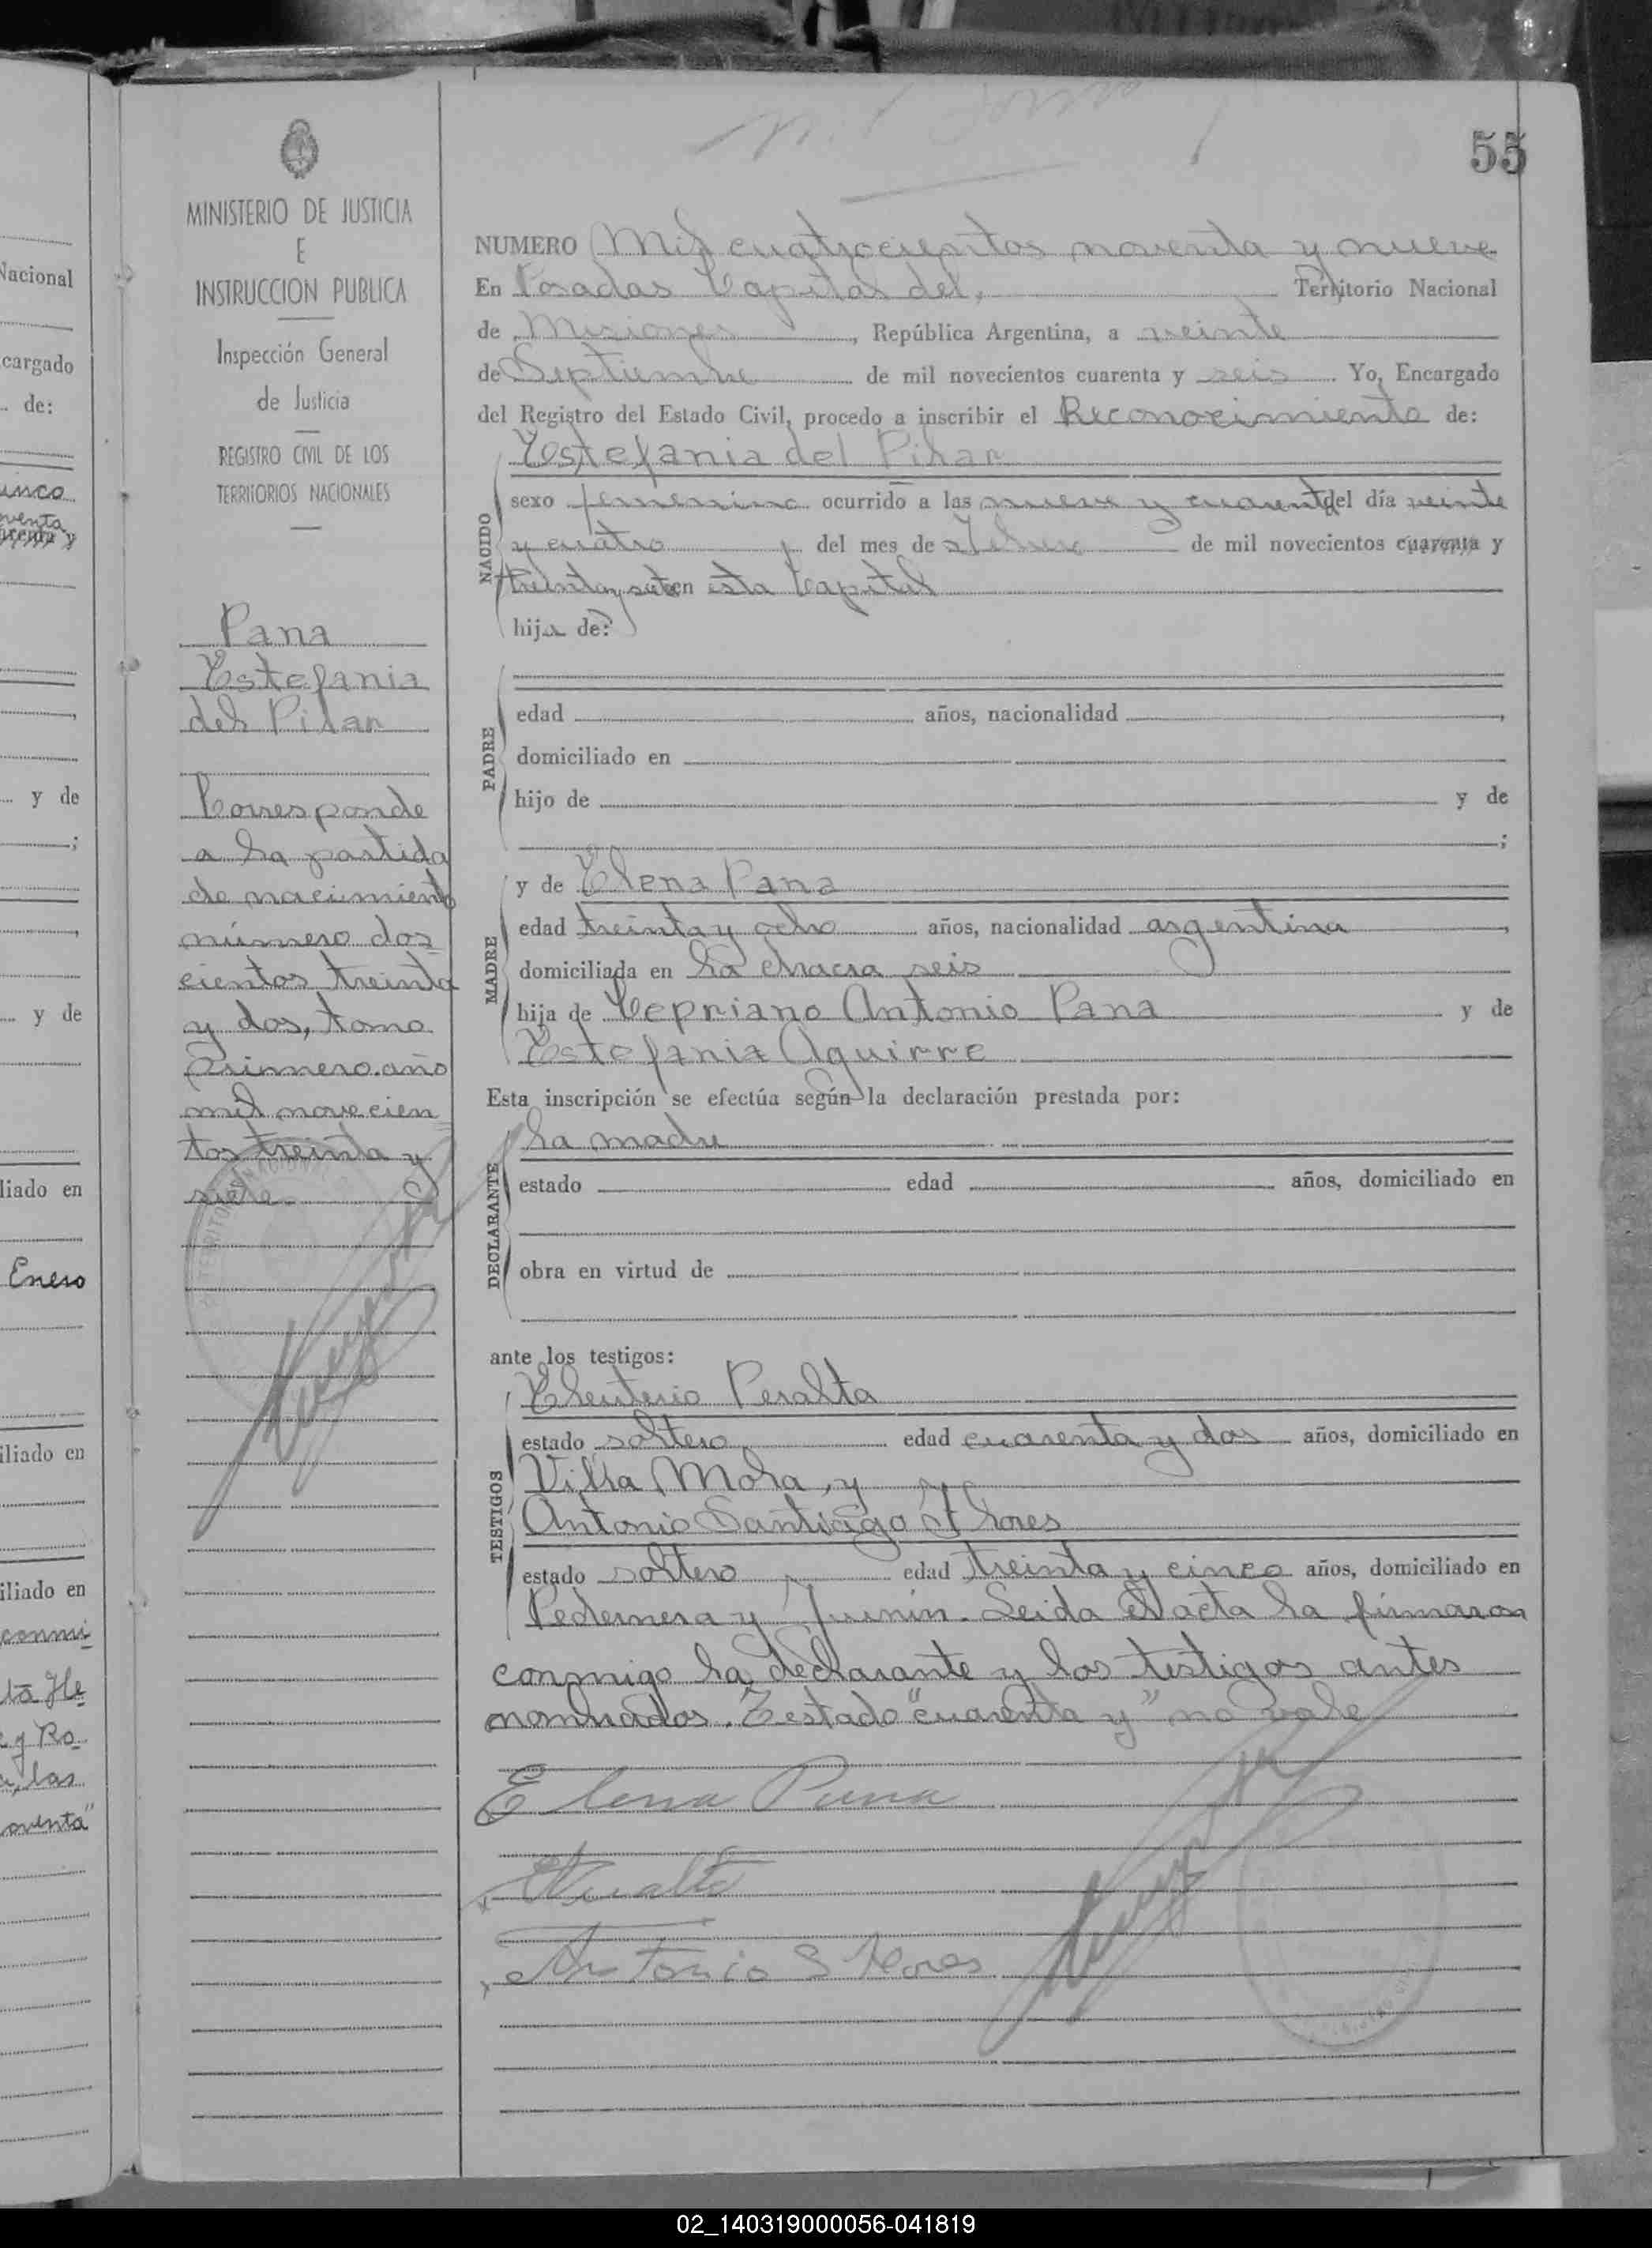 55
MINISTERIO DE JUSTICIA
E
INSTRUCCION PUBLICA
Inspección General
de Justicia
REGISTRO CIVIL DE LOS
TERRITORIOS NACIONALES
Pana
Estefania
del Pilar
Corresponde
a la partida
de nacimiento
número dos
cientos treinta
y dos, tomo
primero. año
mil novecien
tos treinta y
siete.
NUMERO Mil cuatrocientos noventa y nueve
En Posadas Capital del, Territorio Nacional
de Misiones, República Argentina, a veinte
de Septiembre de mil novecientos cuarenta y seis. Yo, Encargado
del Registro del Estado Civil, procedo a inscribir el Reconocimiento de:
Estefania del Pilar
NACIDO
sexo femenino ocurrido a las nueve y cuarenta del día veinte
y cuatro del mes de de mil novecientos cuarenta y
treinta y siete en esta Capital
hija de:
PADRE
edad años, nacionalidad ,
domiciliado en
hijo de y de
;
MADRE
y de Elena Pana
edad treinta y ocho años, nacionalidad argentina,
domiciliada en la chacra seis
hija de Cepriano Antonio Pana y de
Estefania Aguirre
Esta inscripción se efectúa según la declaración prestada por:
DECLARANTE
la madre
estado edad años, domiciliado en
obra en virtud de
ante los testigos:
TESTIGOS
Eleuterio Peralta
estado soltero edad cuarenta y dos años, domiciliado en
Villa Mola, y
Antonio Santiago Flores
estado soltero edad treinta y cinco años, domiciliado en
Pedernera y Junín. Leida el acta la firmaron
conmigo la declarante y los testigos antes
nombrados. Testado "cuarenta y" no vale
Elena Pana
EPeralta
Antonio S Flores
Nacional
cargado
de:
y de
;
y de
liado en
Enero
iliado en
iliado en
02_140319000056-041819